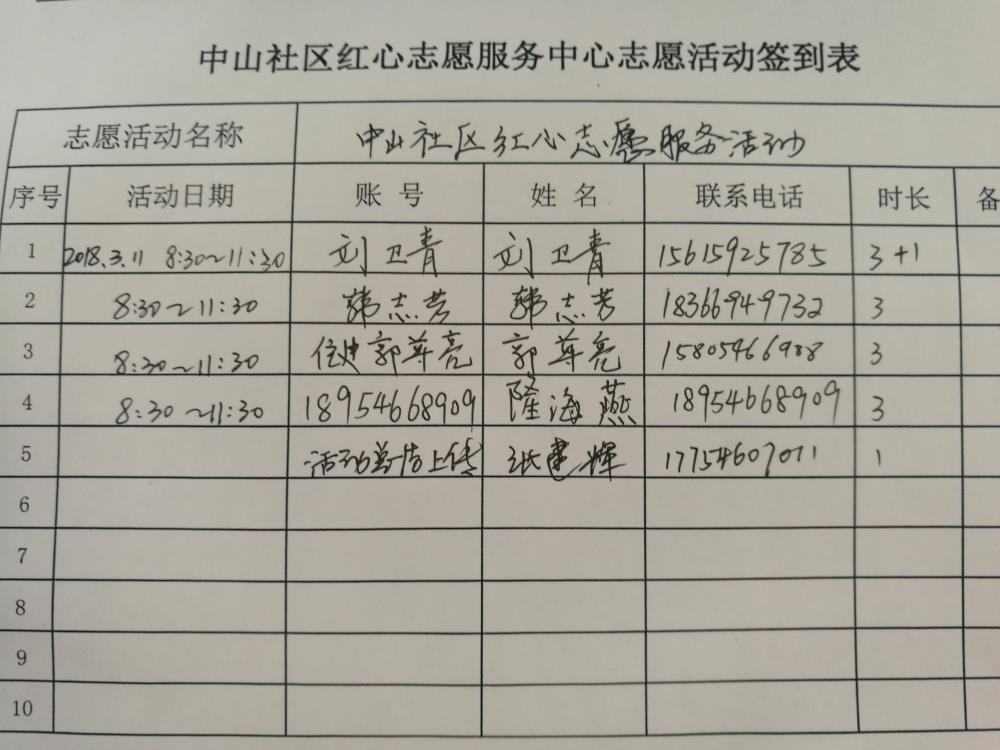 中山社区红心志愿服务中心志愿活动签到表
志愿活动名称 中山社区红心志愿服务活动
序号 活动日期 账 号 姓 名 联系电话 时长 备
1 2018.3.11 8:30~11:30 刘卫青 刘卫青 15615925785 3+1
2 8:30~11:30 韩志芳 韩志芳 18366949732 3
3 8:30~11:30 住建郭尊亮 郭尊亮 15805466988 3
4 8:30~11:30 18954668909 隆海燕 18954668909 3
5 活动总结上传 张建辉 17754607071 1
6
7
8
9
10